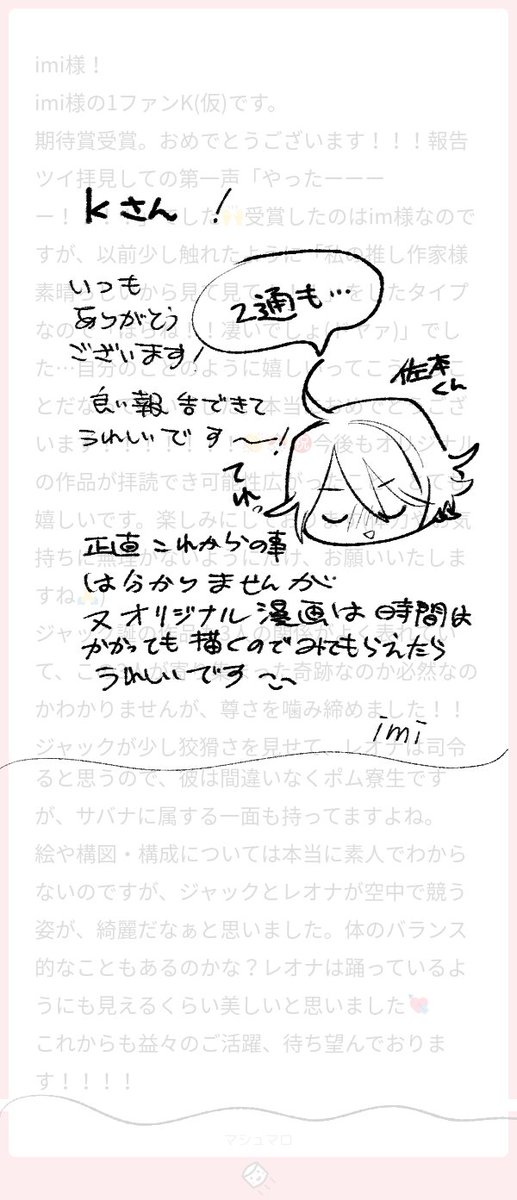 imi様！
imi様の1ファンK(仮)です。
期待賞受賞。おめでとうございます！！！報告
ツイ拝見しての第一声「やったーーー
受賞したのはim様なので
すが、以前少し触れたように「私の推し作家様
kさん！
いつも
ありがとう
ございます！
2通も…
佐本くん
良い報告できて
うれしいです〜！
てれっ
今後もオリジナル
の作品が拝読でき可能性広がったこと、とても
嬉しいです。楽しみにして
正直これからの事
は分かりませんが
又オリジナル漫画は時間は
かかっても描くのでみてもらえたら
うれしいです
imi
かわかりませんが、尊さを噛み締めました！！
ジャックが少し狡猾さを見せて、レオナは司令
ると思うので、彼は間違いなくポム寮生です
が、サバナに属する一面も持ってますよね。
絵や構図・構成については本当に素人でわから
ないのですが、ジャックとレオナが空中で競う
姿が、綺麗だなぁと思いました。体のバランス
的なこともあるのかな？レオナは踊っているよ
うにも見えるくらい美しいと思いました💘
これからも益々のご活躍、待ち望んでおりま
す！！！！
マシュマロ